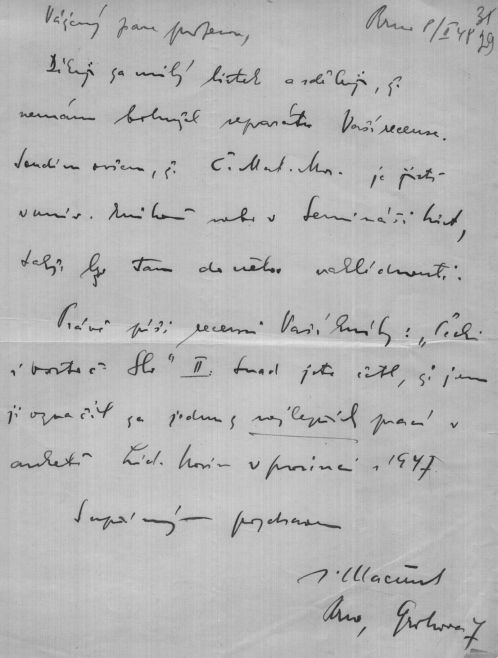 Vážený pane profesore,
Brno 8/II 48
31
29
Děkuji za milý lístek a sděluji, že
nemám bohužel separátu Vaší recense.
Soudím ovšem, že Č. Mat. Mor. je jistě
v univ. knihovně nebo v Semináři hist.,
takže lze tam do něho nahlédnouti.
Právě píši recensi Vaší knihy: „Češi
II. Snad jste četl, že jsem
ji označil za jednu z nejlepších prací v
anketě Lid. Novin v prosinci r. 1947.
S upřímným pozdravem
J. Macůrek
Brno, 7